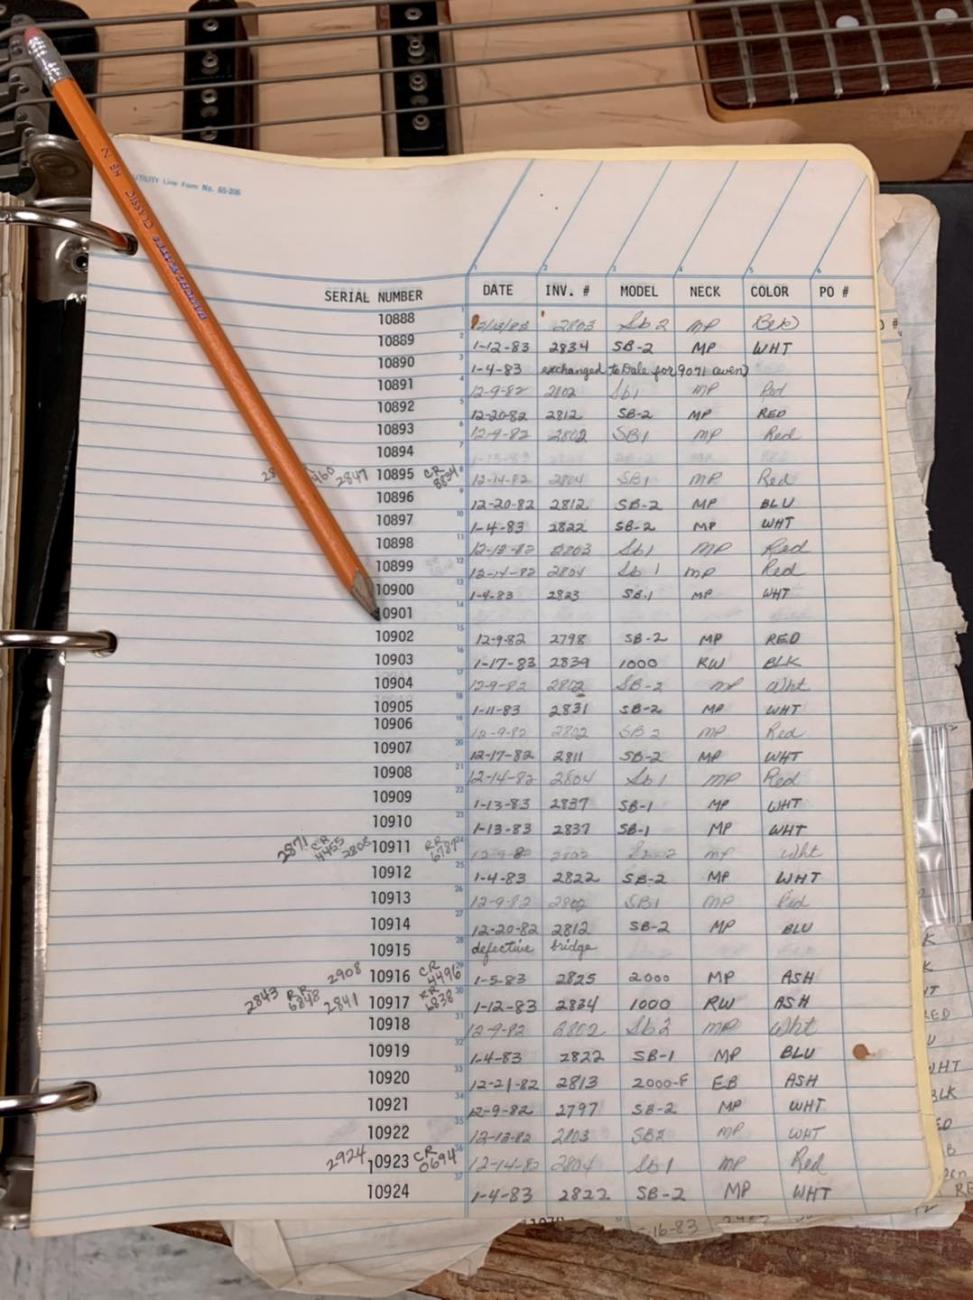 UTILITY Line Form No. 65-206
CLASSIC HB N
SERIAL NUMBER DATE INV. # MODEL NECK COLOR PO #
10888 2803 Sb2 MP
10889 1-12-83 2834 SB-2 MP WHT
10890 1-4-83 exchanged to Dale for 9071
10891 12-9-82 2802 Sb1 MP Red
10892 12-20-82 2812 SB-2 MP RED
10893 12-9-82 2802 SB1 MP Red
10894
2847 10895 CR 8834 12-14-82 2804 SB1 MP Red
10896 12-20-82 2812 SB-2 MP BLU
10897 1-4-83 2822 SB-2 MP WHT
10898 12-13-82 2803 Sb1 MP Red
10899 12-14-82 2804 Sb1 MP Red
10900 1-4-83 2823 SB-1 MP WHT
10901
10902 12-9-82 2798 SB-2 MP RED
10903 1-17-83 2839 1000 RW BLK
10904 12-9-82 2802 SB-2 MP Wht
10905 1-11-83 2831 SB-2 MP WHT
10906 12-9-82 2802 SB2 MP Red
10907 12-17-82 2811 SB-2 MP WHT
10908 12-14-82 2804 Sb1 MP Red
10909 1-13-83 2837 SB-1 MP WHT
10910 1-13-83 2837 SB-1 MP WHT
2871 CR 4455 2805 10911 RR 6787 12-9-82 2802 Sb-2 MP Wht
10912 1-4-83 2822 SB-2 MP WHT
10913 12-9-82 2802 SB1 MP Red
10914 12-20-82 2812 SB-2 MP BLU
10915 defective bridge
2908 10916 CR 4496 1-5-83 2825 2000 MP ASH
2843 RR 6848 2841 10917 RR 6838 1-12-83 2834 1000 RW ASH
10918 12-9-82 2802 Sb2 MP Wht
10919 1-4-83 2822 SB-1 MP BLU
10920 12-21-82 2813 2000-F EB ASH
10921 12-9-82 2797 SB-2 MP WHT
10922 12-13-82 2803 SB2 MP WHT
2924 10923 CR 0694 12-14-82 2804 Sb1 MP Red
10924 1-4-83 2822 SB-2 MP WHT